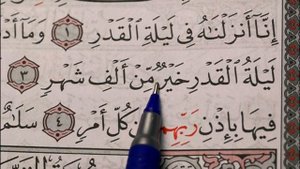 إِنَّآ أَنزَلْنَٰهُ فِى لَيْلَةِ ٱلْقَدْرِ ١ وَمَآ أَدْ
لَيْلَةُ ٱلْقَدْرِ خَيْرٌ مِّنْ أَلْفِ شَهْرٍ ٣
فِيهَا بِإِذْنِ رَبِّهِم كُلِّ أَمْرٍ ٤ سَلَٰمٌ